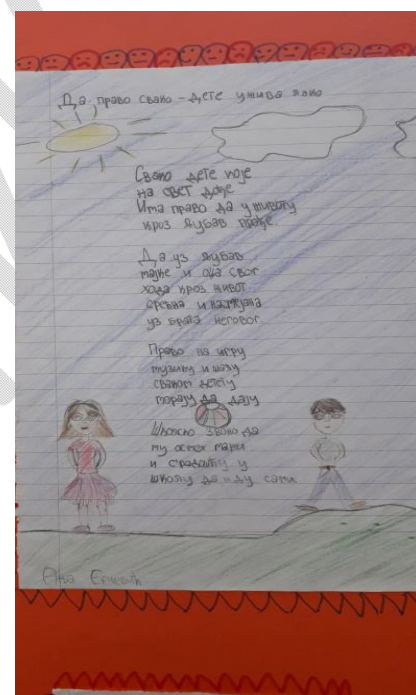 Да, право свако - дете ужива јако
Свако дете које
на свет дође
Има право да у животу
кроз љубав прође.
Да уз љубав
мајке и оца свог
хода кроз живот
срећна и насмејана
уз брата његовог.
Право на игру
музику и мазу
сваком детету
морају да дају
Школско звоно да
му осмех мами
и слободно у
школу да иду сами